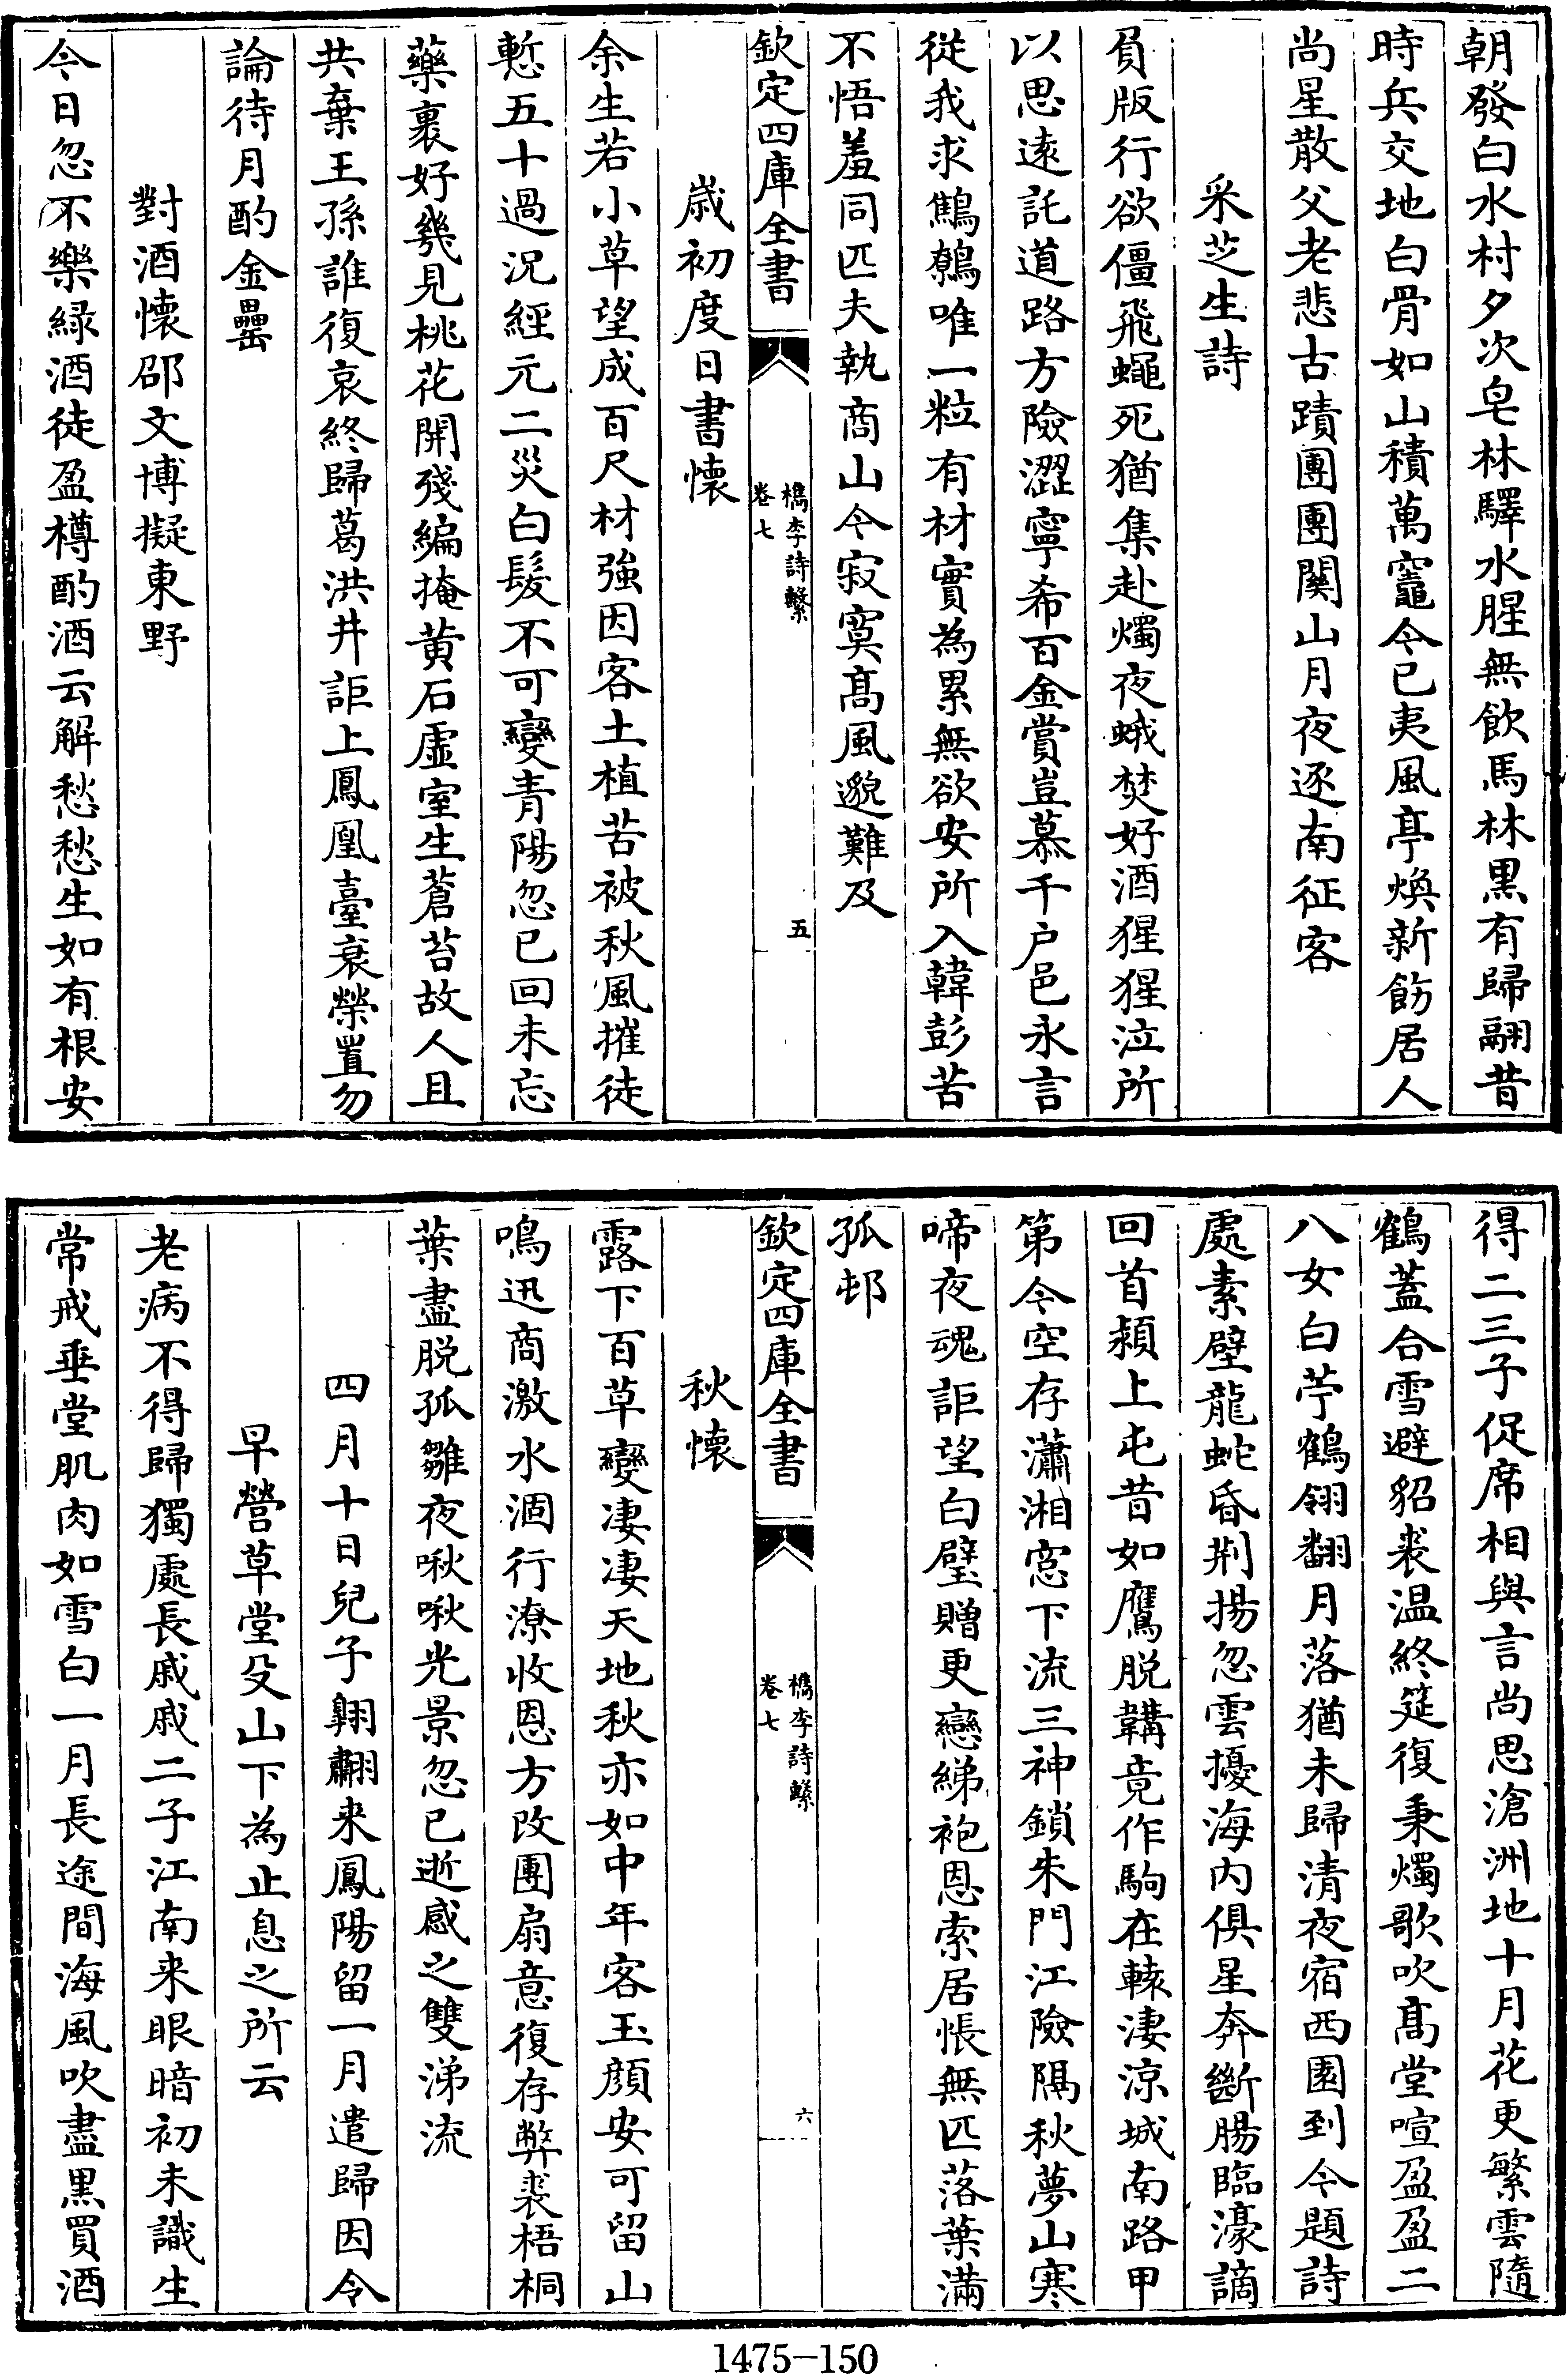 朝發白水村夕次皂林驛水腥無飲馬林黒有歸翮昔
時兵交地白骨如山積萬竈今已夷風亭煥新飭居人
尚星散父老悲古蹟團團闗山月夜逐南征客
采芝生詩
負版行欲僵飛蠅死猶集赴燭夜蛾焚好酒猩猩泣所
以思逺託道路方險澀寧希百金賞豈慕千户邑永言
從我求鷦鷯唯一粒有材實為累無欲安所入韓彭苦
不悟羞同匹夫執商山今寂寞髙風邈難及
欽定四庫全書
檇李詩繫
卷七
五
歳初度日書懷
余生若小草望成百尺材強因客土植苦被秋風摧徒
慙五十過况經元二災白髮不可變青陽忽已回未忘
藥裹好幾見桃花開殘編掩黄石虚室生蒼苔故人且
共棄王孫誰復哀終歸葛洪井詎上鳳凰臺衰榮置勿
論待月酌金罍
對酒懷邵文博擬東野
今日忽不樂緑酒徒盈樽酌酒云解愁愁生如有根安
得二三子促席相與言尚思滄洲地十月花更繁雲隨
鶴蓋合雪避貂裘温終筵復秉燭歌吹髙堂喧盈盈二
八女白苧鶴翎翻月落猶未歸清夜宿西園到今題詩
處素壁龍蛇昏荆揚忽雲擾海内俱星奔斷腸臨濠謫
回首潁上屯昔如鷹脱韝竟作駒在轅淒涼城南路甲
第今空存瀟湘窓下流三神鎖朱門江險隔秋夢山寒
啼夜魂詎望白璧贈更戀綈袍恩索居悵無匹落葉滿
孤邨
欽定四庫全書
檇李詩繫
卷七
六
秋懷
露下百草變淒淒天地秋亦如中年客玉顔安可留山
鳴迅商激水涸行潦收恩方改團扇意復存弊裘梧桐
葉盡脱孤雛夜啾啾光景忽已逝感之雙涕流
四月十日兒子翺翽来鳳陽留一月遣歸因令
早營草堂殳山下為止息之所云
老病不得歸獨處長戚戚二子江南来眼暗初未識生
常戒垂堂肌肉如雪白一月長途間海風吹盡黒買酒
1475-150